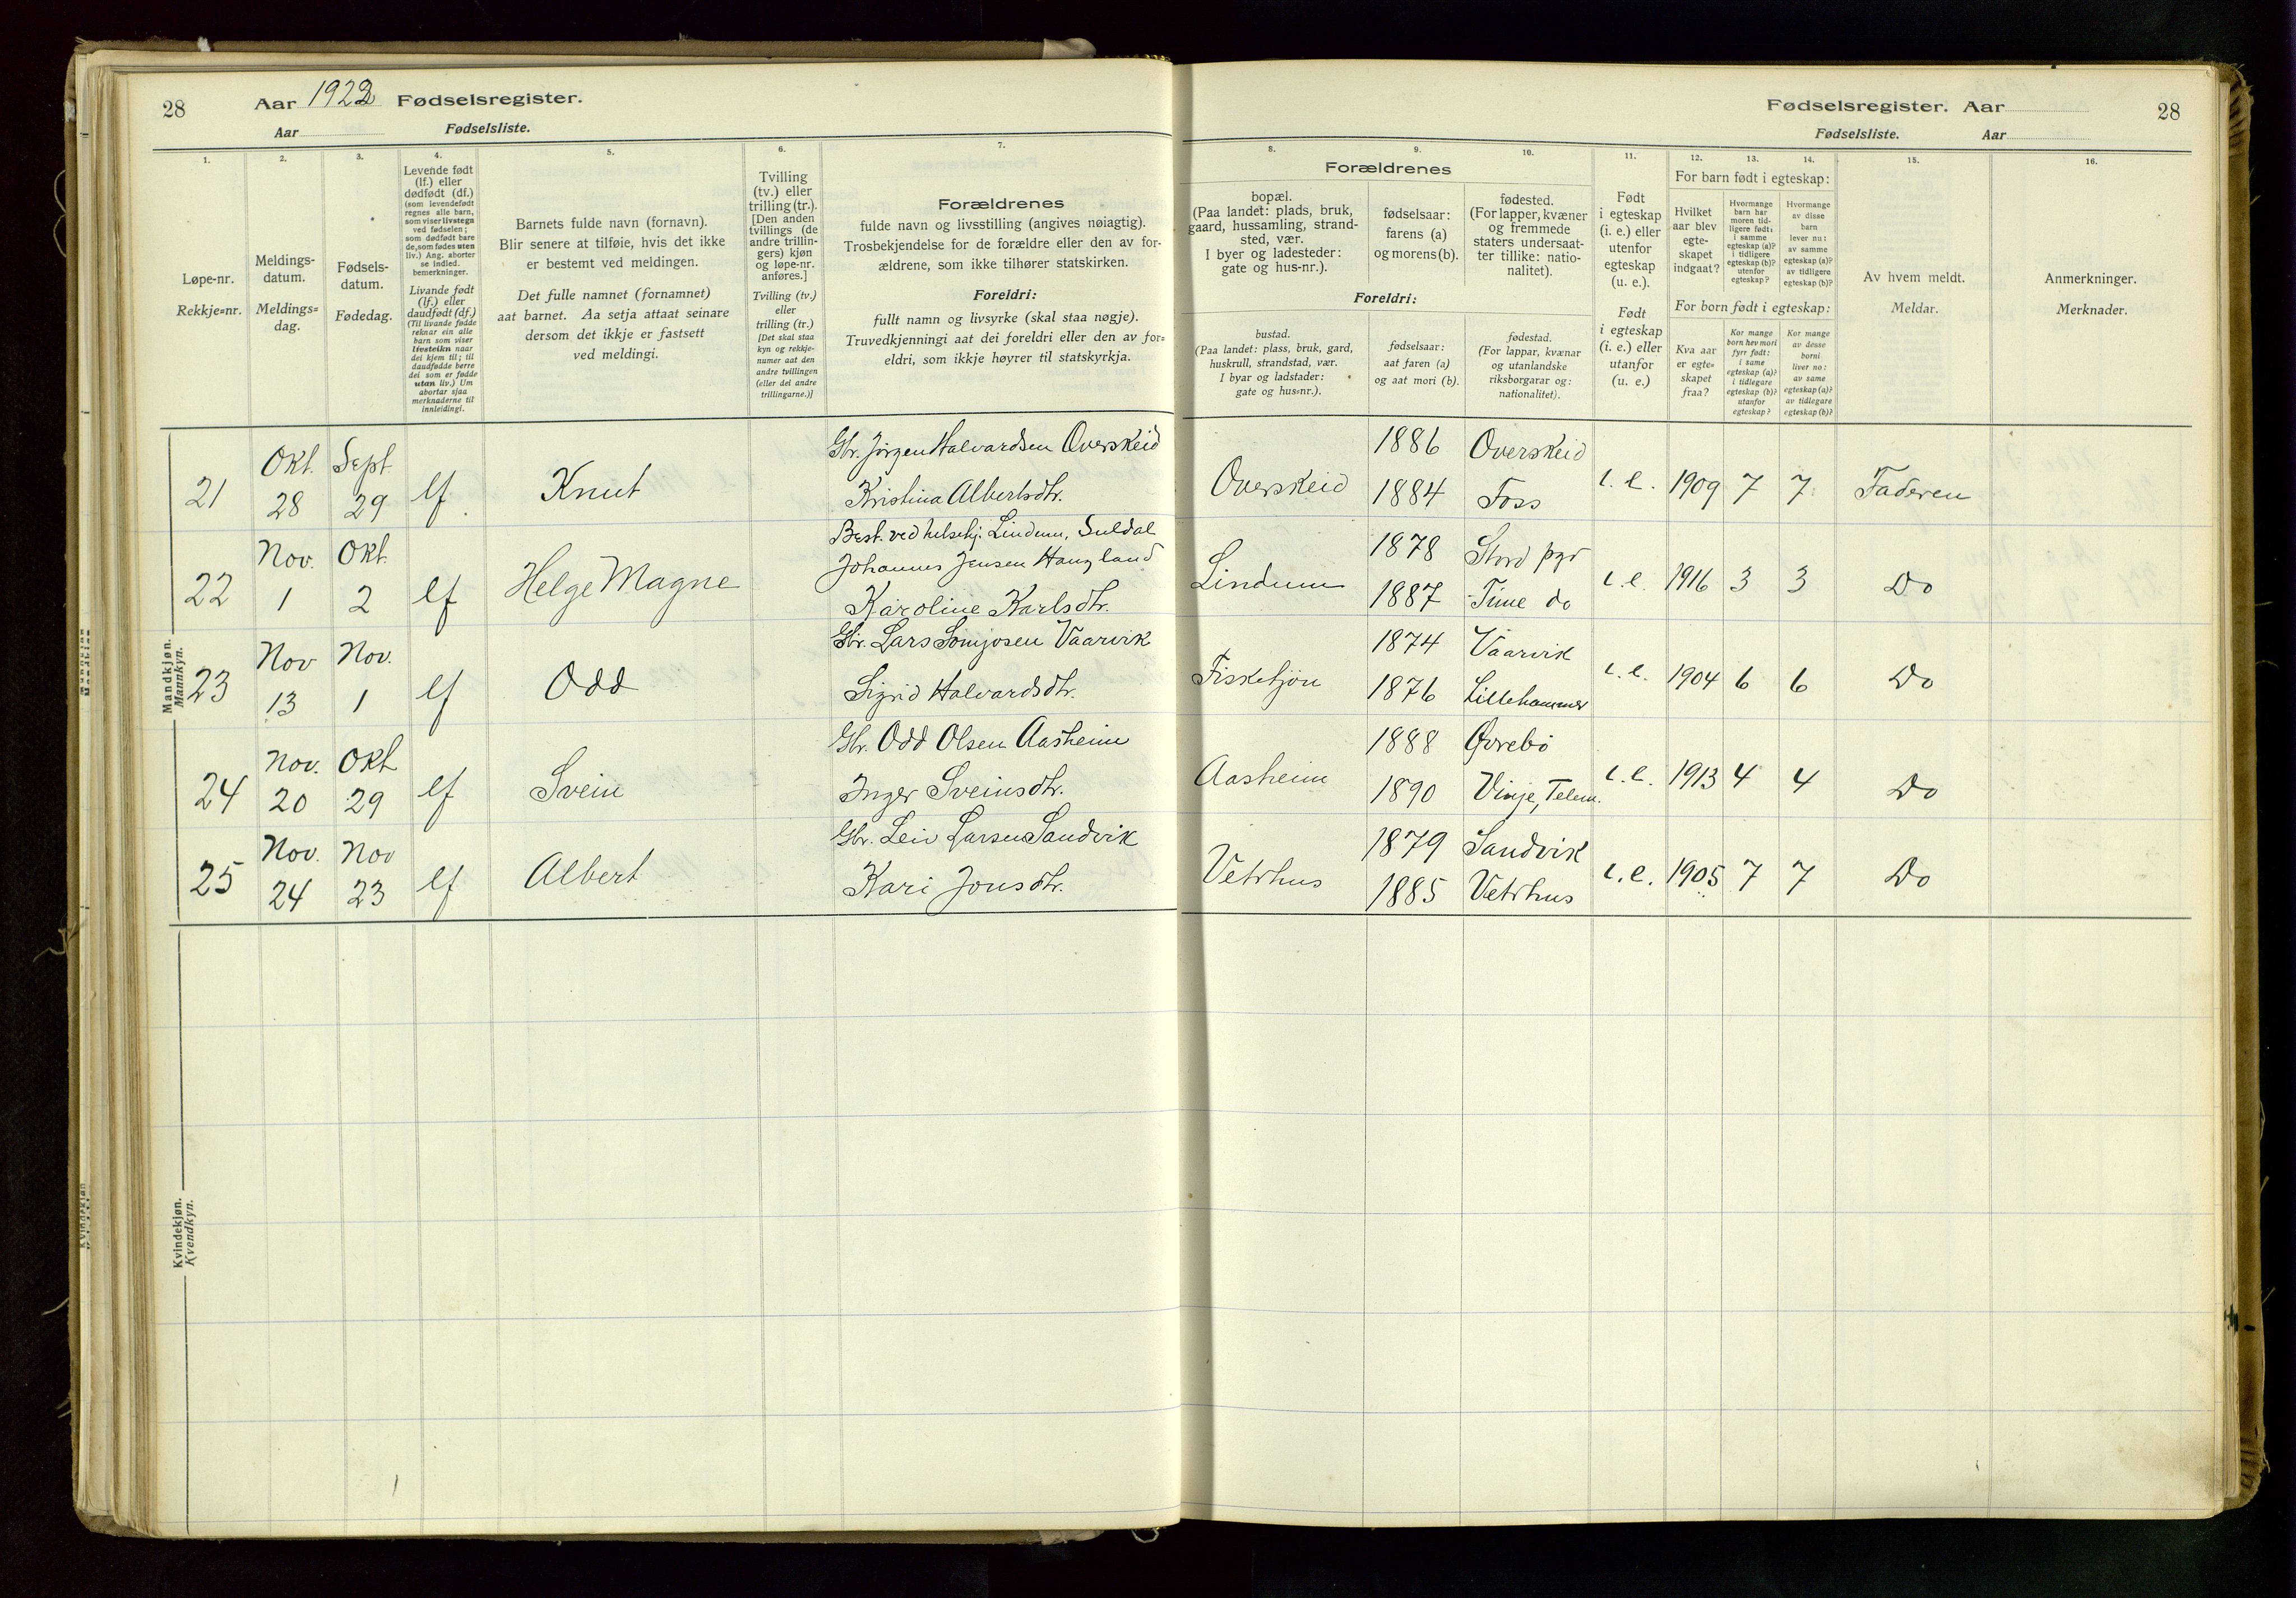 28 Aar 1922 Fødselsregister.
Aar Fødselsliste.
Fødselsregister. Aar 28
Fødselsliste. Aar
1. 2. 3. 4. 5. 6. 7.
Løpe-nr.
Rekkje=nr.
Meldings-
datum.
Meldings=
dag.
Fødsels-
datum.
Fødedag.
Levende født
(lf.) eller
dødfødt (df.)
(som levendefødt
regnes alle barn,
som viser livstegn
ved fødselen;
som dødfødt bare
de, som fødes uten
liv.) Ang. aborter
se indled.
bemerkninger.
Livande født
(lf.) eller
daudfødt (df.)
(Til livande fødde
reknar ein alle
barn som viser
livsteikn naar
dei kjem til; til
daudfødde berre
dei som er fødde
utan liv.) Um
abortar sjaa
merknaderne til
innleidingi.
Barnets fulde navn (fornavn).
Blir senere at tilføie, hvis det ikke
er bestemt ved meldingen.
Det fulle namnet (fornamnet)
aat barnet. Aa setja attaat seinare
dersom det ikkje er fastsett
ved meldingi.
Tvilling
(tv.) eller
trilling (tr.).
[Den anden
tvillings (de
andre trillin-
gers) kjøn
og løpe-nr.
anføres.]
Tvilling (tv.)
eller
trilling (tr.)
[Det skal staa
kyn og rekkje-
numer aat den
andre tvillingen
(eller dei andre
trillingarne.)]
Forældrenes
fulde navn og livsstilling (angives nøiagtig).
Trosbekjendelse for de forældre eller den av for-
ældrene, som ikke tilhører statskirken.
Foreldri:
fullt namn og livsyrke (skal staa nøgje).
Truvedkjenningi aat dei foreldri eller den av for=
eldri, som ikkje høyrer til statskyrkja.
8. 9. 10. 11. 12. 13. 14. 15. 16.
Forældrenes
bopæl.
(Paa landet: plads, bruk,
gaard, hussamling, strand-
sted, vær.
I byer og ladesteder:
gate og hus-nr.).
fødselsaar:
farens (a)
og morens (b).
fødested.
(For lapper, kvæner
og fremmede
staters undersaat-
ter tillike: natio-
nalitet).
Foreldri:
bustad.
(Paa landet: plass, bruk, gard,
huskrull, strandstad, vær.
I byar og ladstader:
gate og hus=nr.).
fødselsaar:
aat faren (a)
og aat mori (b).
fødestad.
(For lappar, kvænar
og utanlandske
riksborgarar og:
nationalitet).
Født
i egteskap
(i. e.) eller
utenfor
egteskap
(u. e.).
Født
i egteskap
(i. e.) eller
utanfor
(u. e.).
For barn født i egteskap:
Hvilket
aar blev
egte-
skapet
indgaat?
Hvormange
barn har
moren tid-
ligere født:
i samme
egteskap (a)?
i tidligere
egteskap (b)?
utenfor
egteskap?
Hvormange
av disse
barn
lever nu:
av samme
egteskap (a)?
av tidligere
egteskap (b)?
For born født i egteskap:
Kva aar
er egte=
skapet
fraa?
Kor mange
born hev mori
fyrr født:
i same
egteskap (a)?
i tidlegare
egteskap (b)?
utanfor
egteskap?
Kor mange
av desse
borni
liver no:
av same
egteskap (a)?
av tidlegare
egteskap (b)?
Av hvem meldt.
Meldar.
Anmerkninger.
Merknader.
Mandkjøn.
Mannkyn.
21 Okt. 28 Sept. 29 lf. Knut
Gbr. Jørgen Halvardsen Overskeid
Kristina Albertsdtr.
Overskeid 1886 Overskeid
1884 Foss
i. e. 1909 7 7 Faderen
22 Nov. 1 Okt. 2 lf Helge Magne
Best. ved helsehj. Lindum, Suldal
Johannes Jensen Haugland
Karoline Karlsdtr.
Lindum 1878 Stord pgr
1887 Time do
i. e. 1916 3 3 Do
23 Nov 13 Nov. 1 lf Odd
Gbr. Lars Vaarvik
Sigrid Halvardsdtr.
Fisketjøn 1874 Vaarvik
1876 Lillehammer
i. e. 1904 6 6 Do
24 Nov. 20 Okt 29 lf Svein
Gbr. Odd Olsen Aasheim
Inger Sveinsdtr.
Aasheim 1888 Øvrebø
1890 Vinje, Telem.
i. e. 1913 4 4 Do
25 Nov. 24 Nov 23 lf Albert
Gbr. Leiv Larsen Sandvik
Kari Jonsdtr.
Vetrhus 1879 Sandvik
1885 Vetrhus
i. e. 1905 7 7 Do
Kvindekjøn.
Kvendkyn.